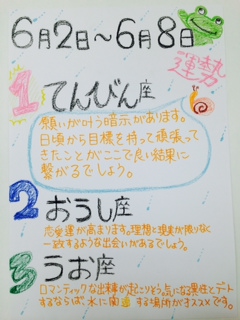 6月2日～6月8日
運勢
1 てんびん座
願いが叶う暗示があります。
日頃から目標を持って頑張って
きたことがここで良い結果に
繋がるでしょう。
2 おうし座
恋愛運が高まります。理想と現実が限りなく
一致するような出会いがあるでしょう。
3 うお座
ロマンティックな出来事が起こりそう。気になる異性とデート
するならば、水に関する場所がオススメです。